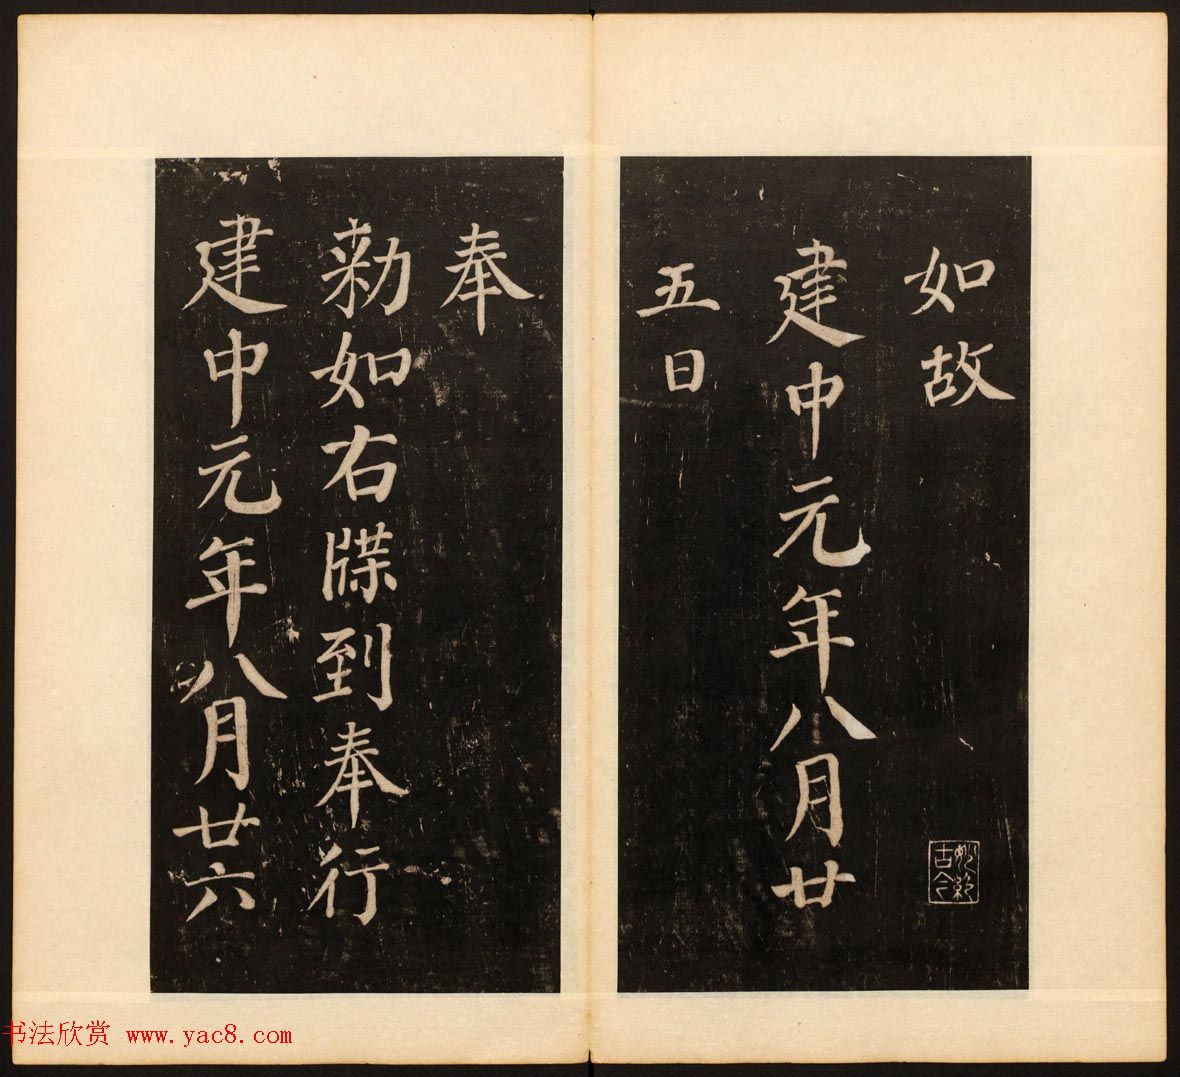 如故
建中元年八月廿
五日
奉
勅如右牒到奉行
建中元年八月廿六
书法欣赏 www.yac8.com